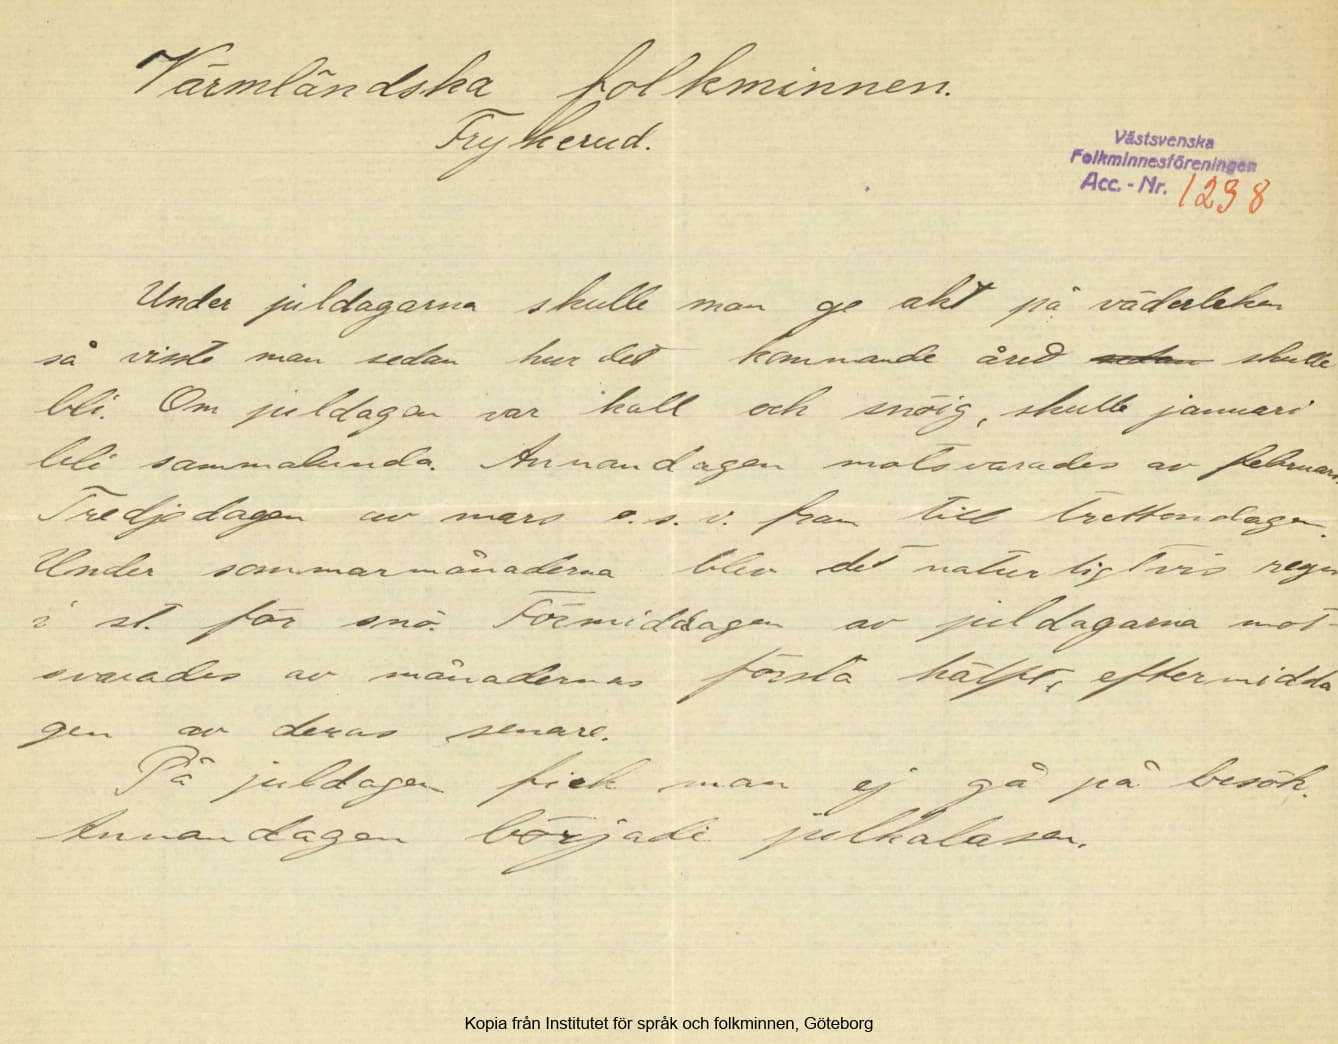 Värmländska folkminnen.
Frykerud.
Västsvenska
Folkminnesföreningen
Acc. - Nr. 1238
Under juldagarna skulle man ge akt på väderleken
så visste man sedan hur det kommande året sedan skulle
bli. Om juldagen var kall och snöig, skulle januari
bli sammalunda. Annandagen motsvarades av februari.
Tredjedagen av mars o.s.v. fram till trettondagen.
Under sommarmånaderna blev det naturligtvis regn
i st. för snö. Förmiddagen av juldagarna mot-
svarades av månadernas första hälft, eftermidda
gen av deras senare.
På juldagen fick man ej gå på besök.
Annandagen började julkalasen.
Kopia från Institutet för språk och folkminnen, Göteborg